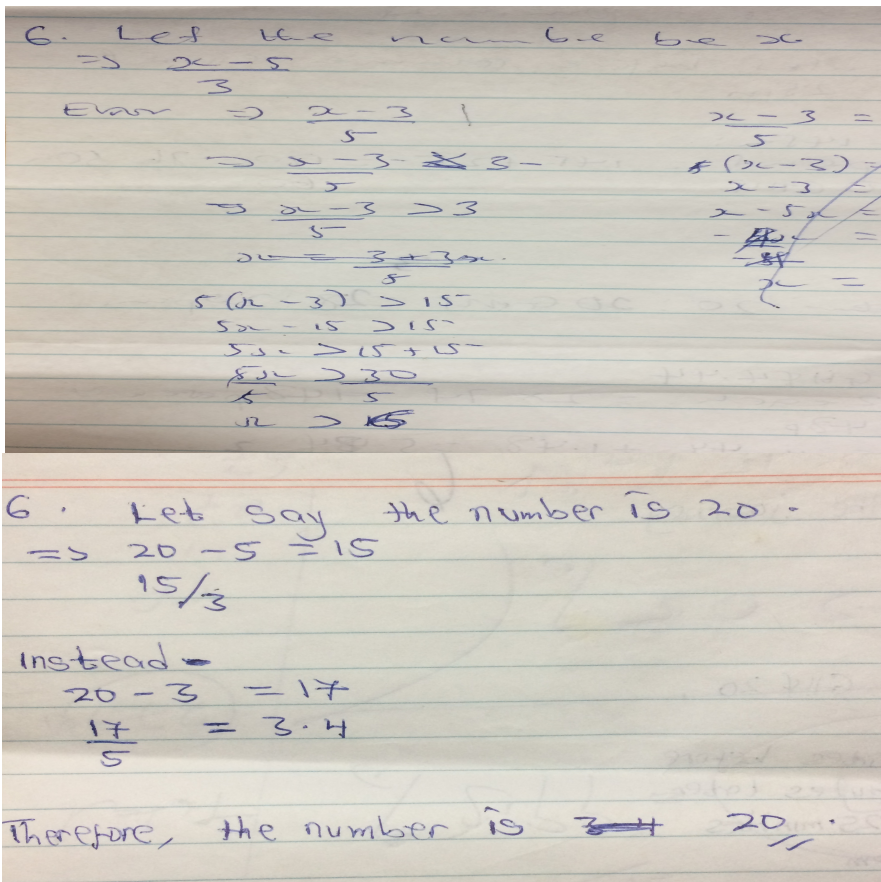 6. Let the number be x
=> x - 5
3
Error => x - 3
5
=> x - 3 - 3 -
5
=> x - 3 > 3
5
x = 3 + 3x.
5
5 (x - 3) > 15
5x - 15 > 15
5x > 15 + 15
5x > 30
5 5
x > 6
x - 3 =
5
(x - 3) =
x - 3 =
x - 5x =
- =
x =
6. Let say the number is 20.
=> 20 - 5 = 15
15/3
instead -
20 - 3 = 17
17 = 3.4
5
Therefore, the number is 3.4 20.